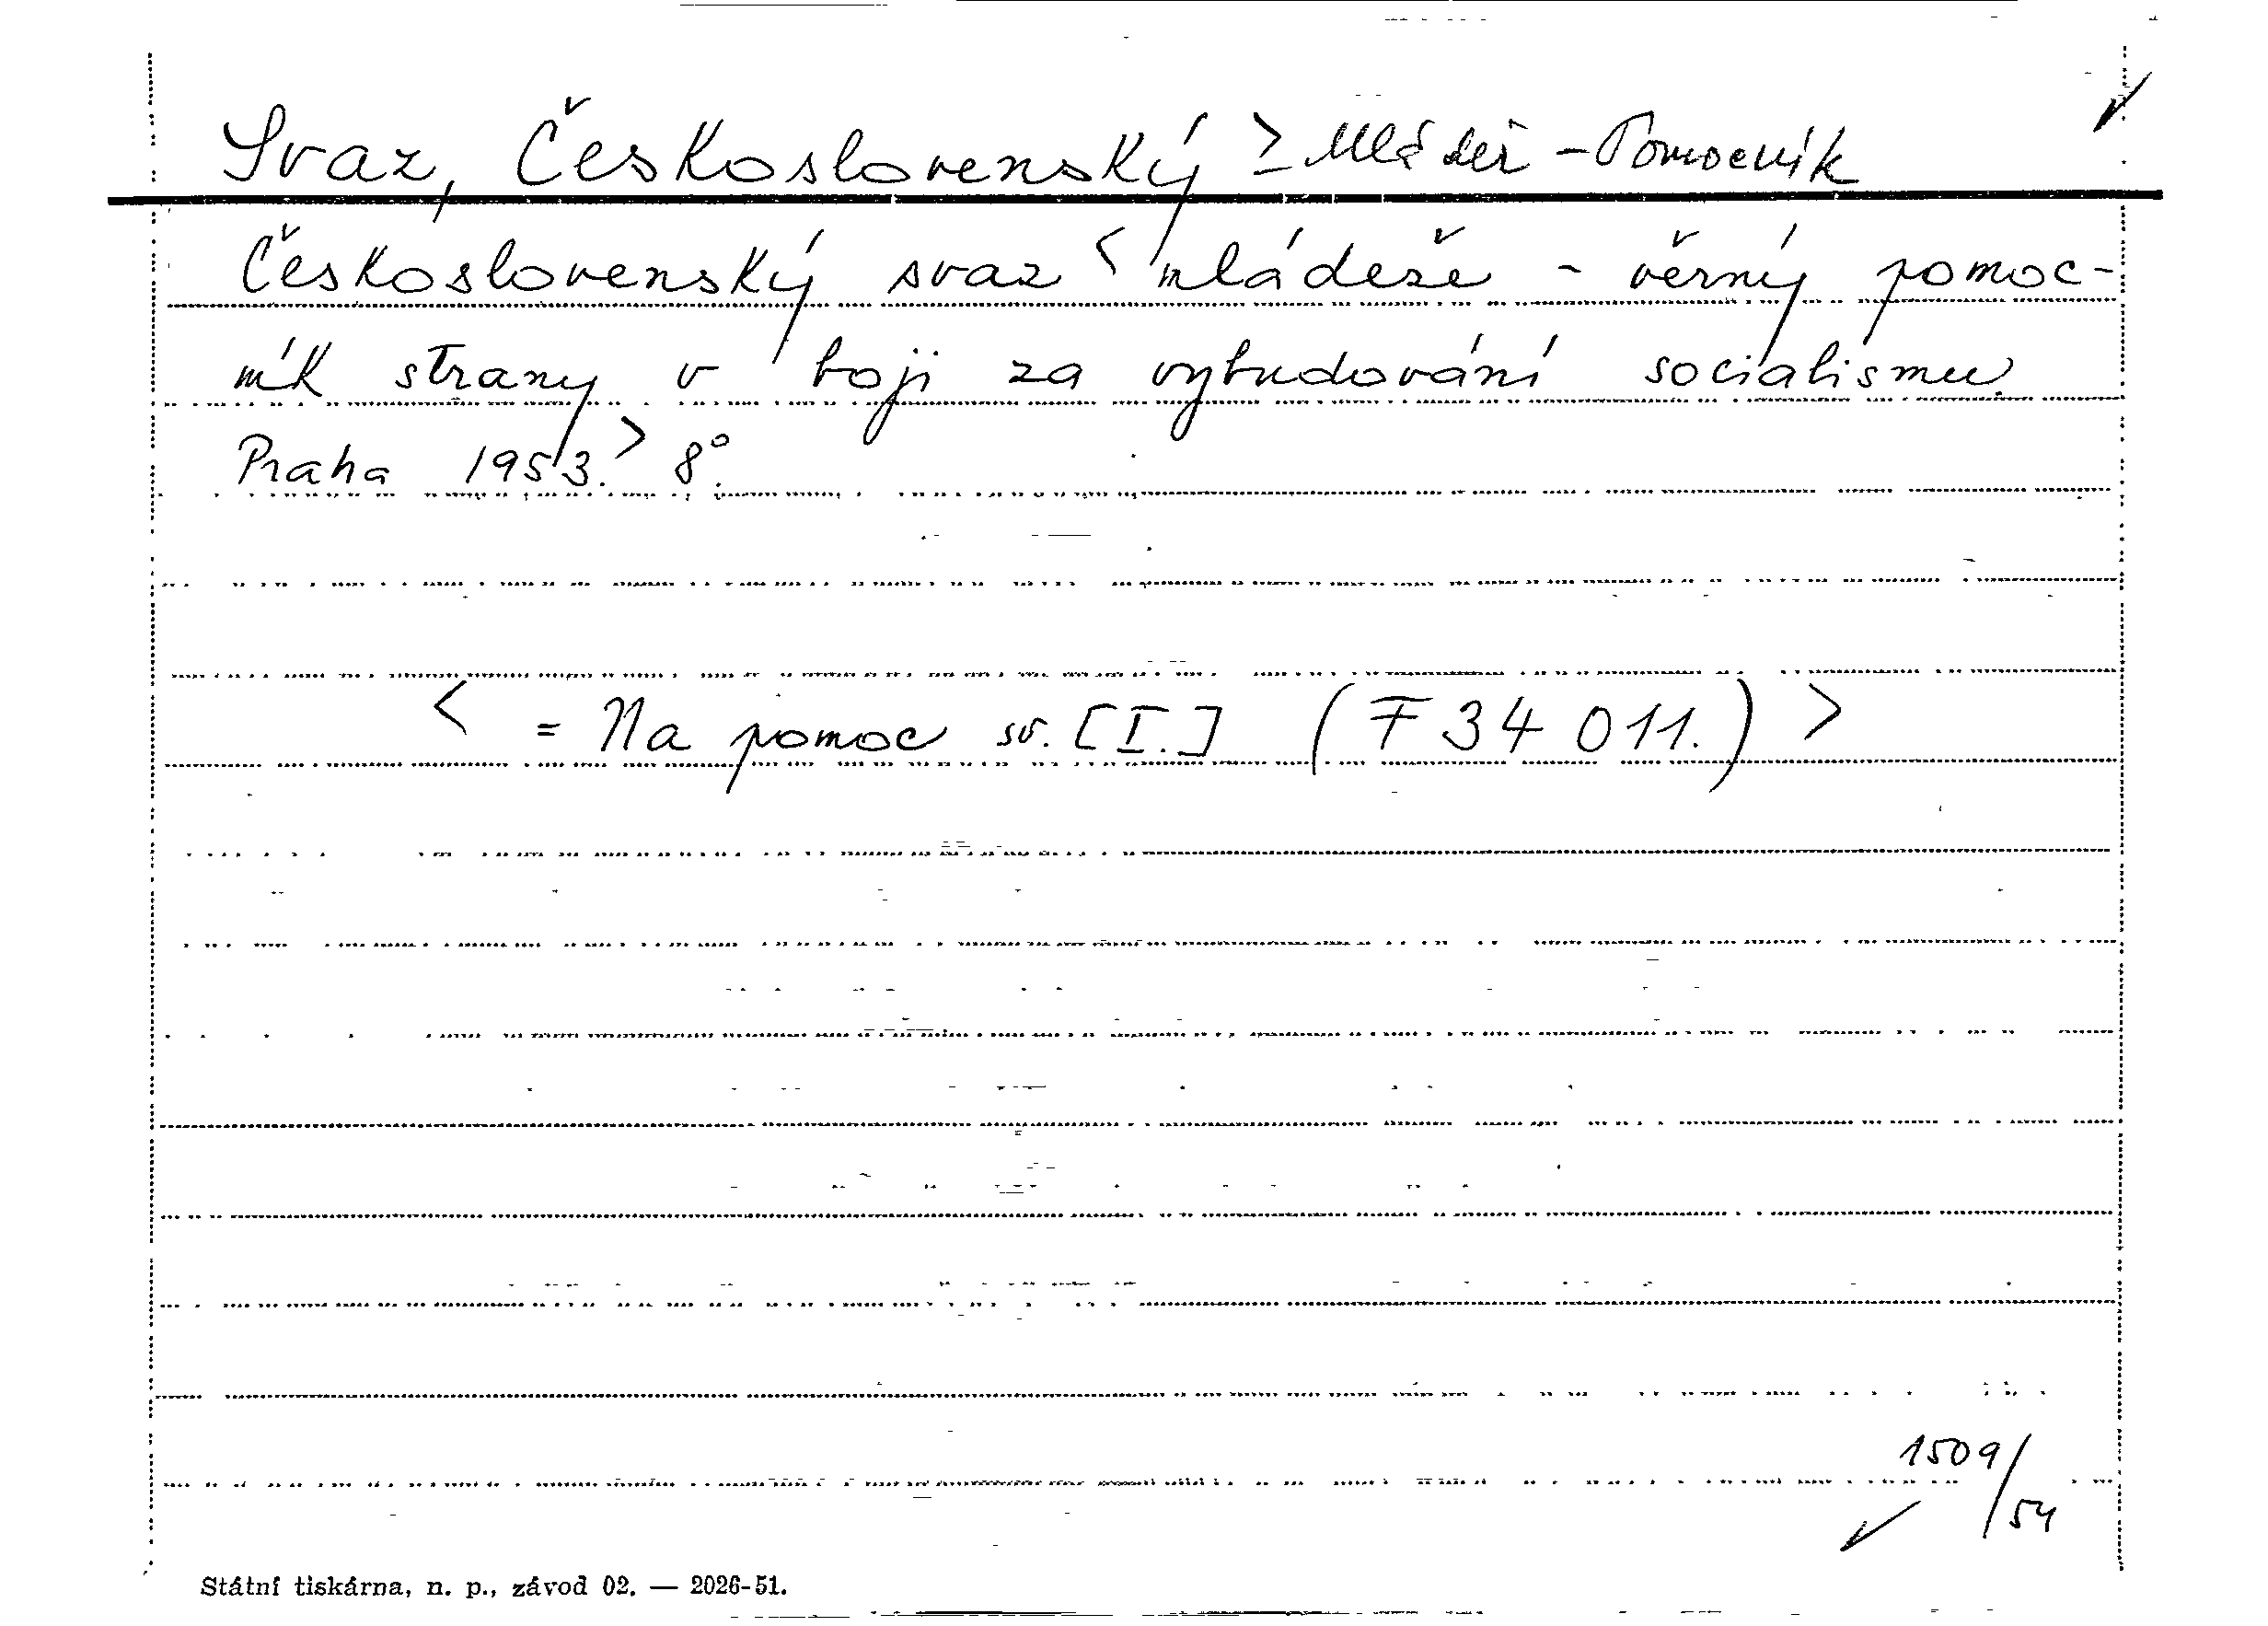 Svaz, Československý > Mládež - Pomocník
Československý svaz < mládeže - věrný pomoc-
ník strany v boji za vybudování socialismu
Praha 1953. > 8°.
< = Na pomoc sv. [I.] (F 34 011.) >
1509/
54
Státní tiskárna, n. p., závod 02. — 2026-51.